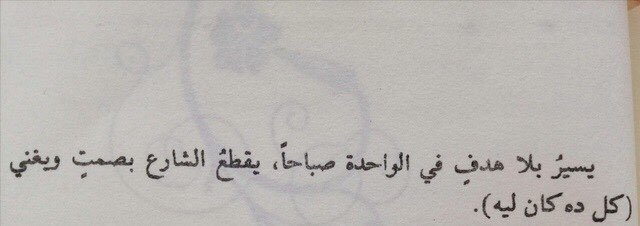 يسيرُ بلا هدفٍ في الواحدة صباحاً، يقطعُ الشارع بصمتٍ ويغني
(كل ده كان ليه).